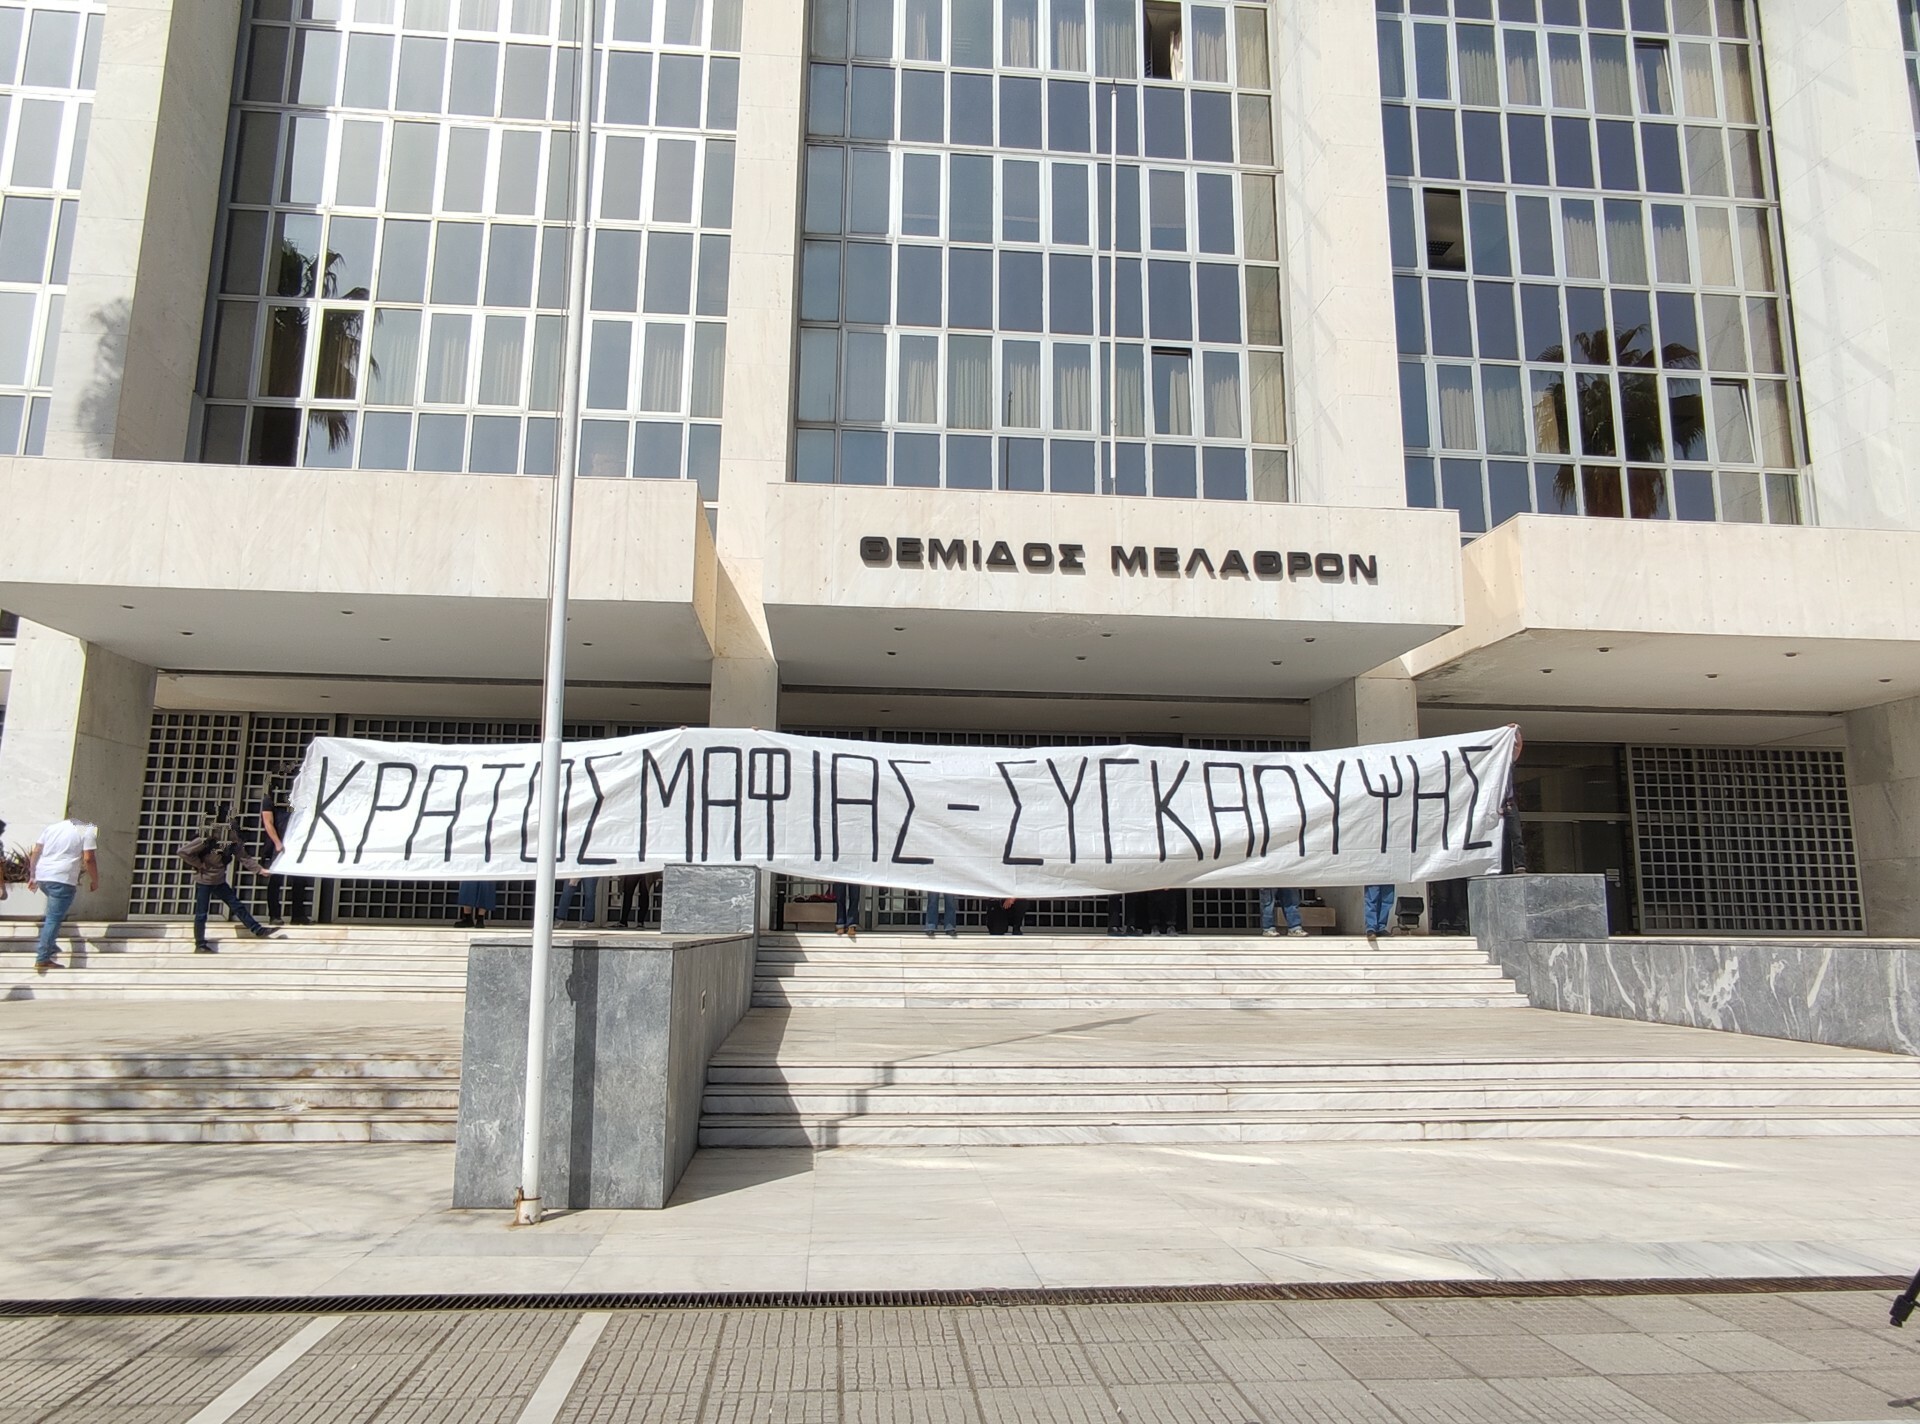 ΘΕΜΙΔΟΣ ΜΕΛΑΘΡΟΝ
ΚΡΑΤΟΣ ΜΑΦΙΑΣ - ΣΥΓΚΑΛΥΨΗΣ